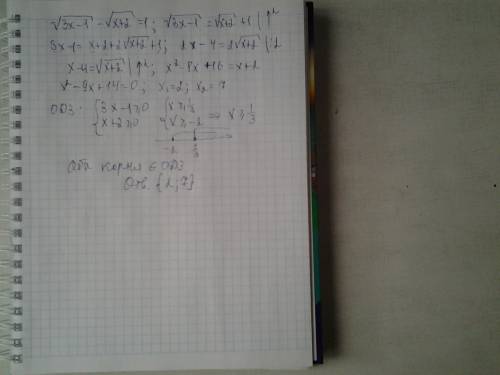 √(3x-1) - √(x+2) = 1; √(3x-1) = √(x+2) + 1 |↑²
3x-1 = x+2+2√(x+2)+1; 2x-4=2√(x+2) |:2
x-4=√(x+2) |↑²; x²-8x+16=x+2
x²-9x+14=0; x₁=2; x₂=7
ОДЗ: {3x-1≥0 {x≥1/3
{x+2≥0 {x≥-2 ⇒ x≥1/3
-2 1/3
Оба корня ∈ ОДЗ
Отв. {2;7}